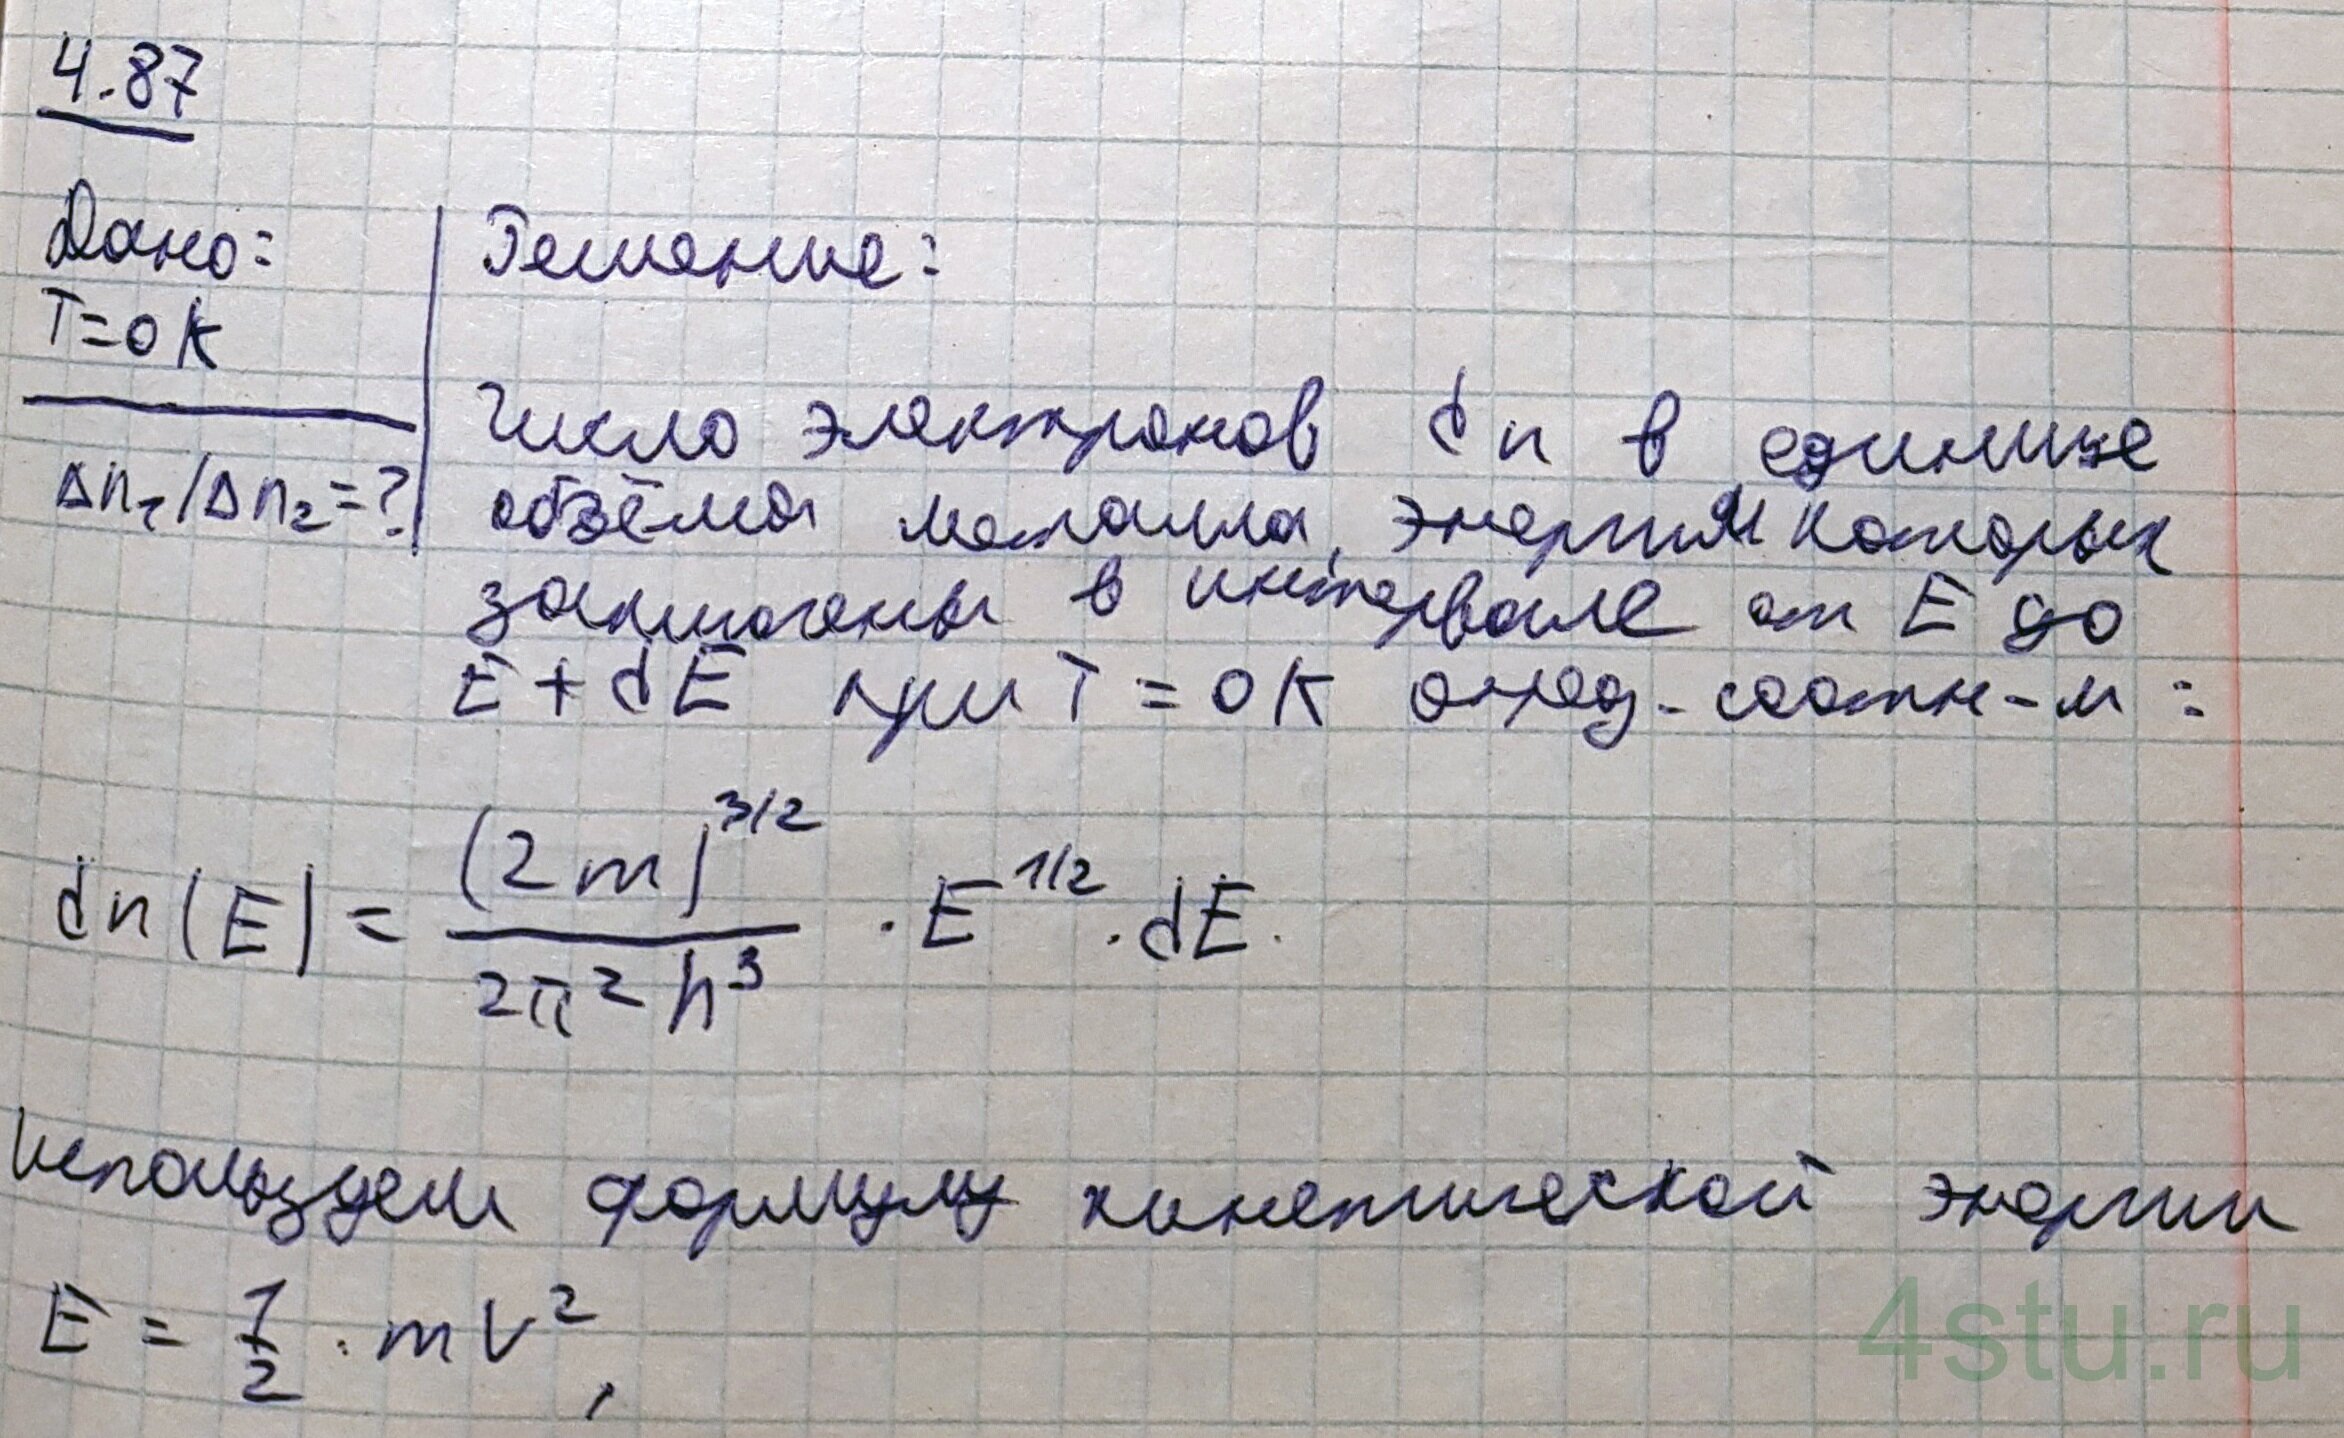 4.87
Дано:
T=0K
Δn₁/Δn₂=?
Решение:
Число электронов dn в единице
объёма металла, энергии которых
заключены в интервале от E до
E+dE при T=0K опред-соотн-м:
dn(E) = (2m)^3/2 / 2π²ħ³ · E^1/2 · dE.
Используем формулу кинетической энергии
E = 1/2 · mV²,
4stu.ru